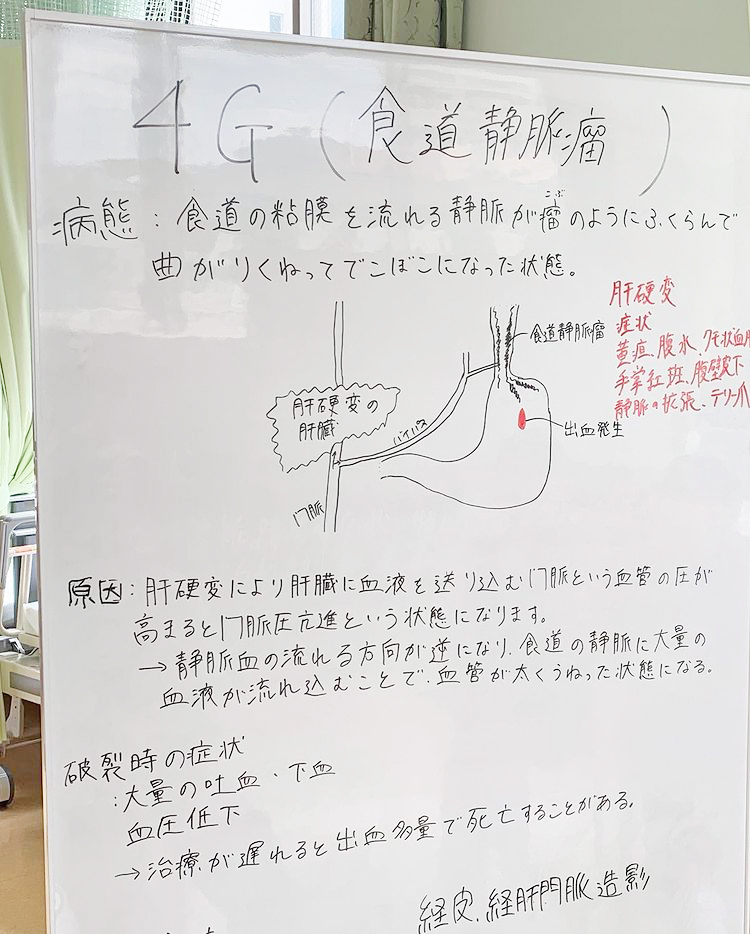 4G(食道静脈瘤)
病態：食道の粘膜を流れる静脈が瘤のようにふくらんで
こぶ
曲がりくねってでこぼこになった状態。
肝硬変
症状
黄疸、腹水、クモ状血
手掌紅斑、腹壁皮下
静脈の拡張、テリー爪
食道静脈瘤
肝硬変の
肝臓
バイパス
出血発生
門脈
原因：肝硬変により肝臓に血液を送り込む門脈という血管の圧が
高まると門脈圧亢進という状態になります。
→静脈血の流れる方向が逆になり、食道の静脈に大量の
血液が流れ込むことで、血管が太くうねった状態になる。
破裂時の症状
：大量の吐血・下血
血圧低下
→治療が遅れると出血多量で死亡することがある。
経皮、経肝門脈造影